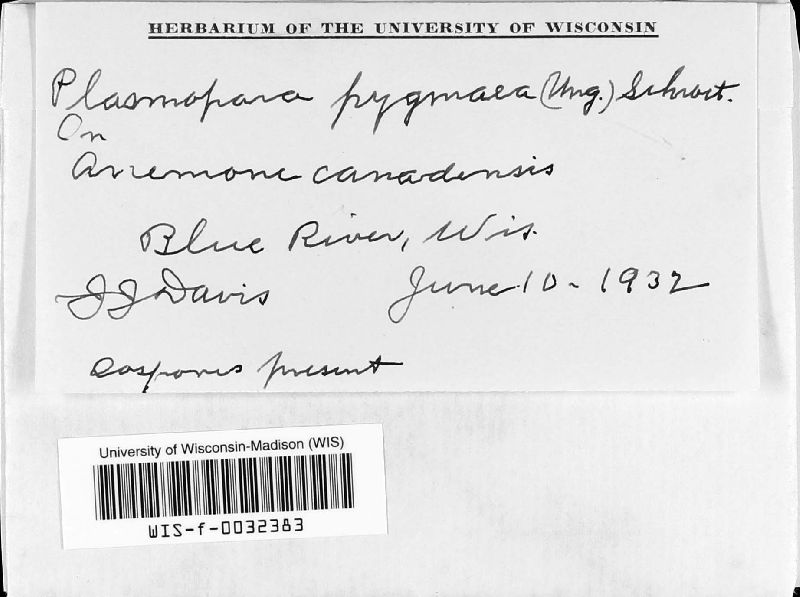 HERBARIUM OF THE UNIVERSITY OF WISCONSIN
Plasmopara pygmaea (Ung.) Schroet.
On
Anemone canadensis
Blue River, Wis.
JJ Davis June 10 - 1932
Oospores present
University of Wisconsin-Madison (WIS)
WIS-f-0032383